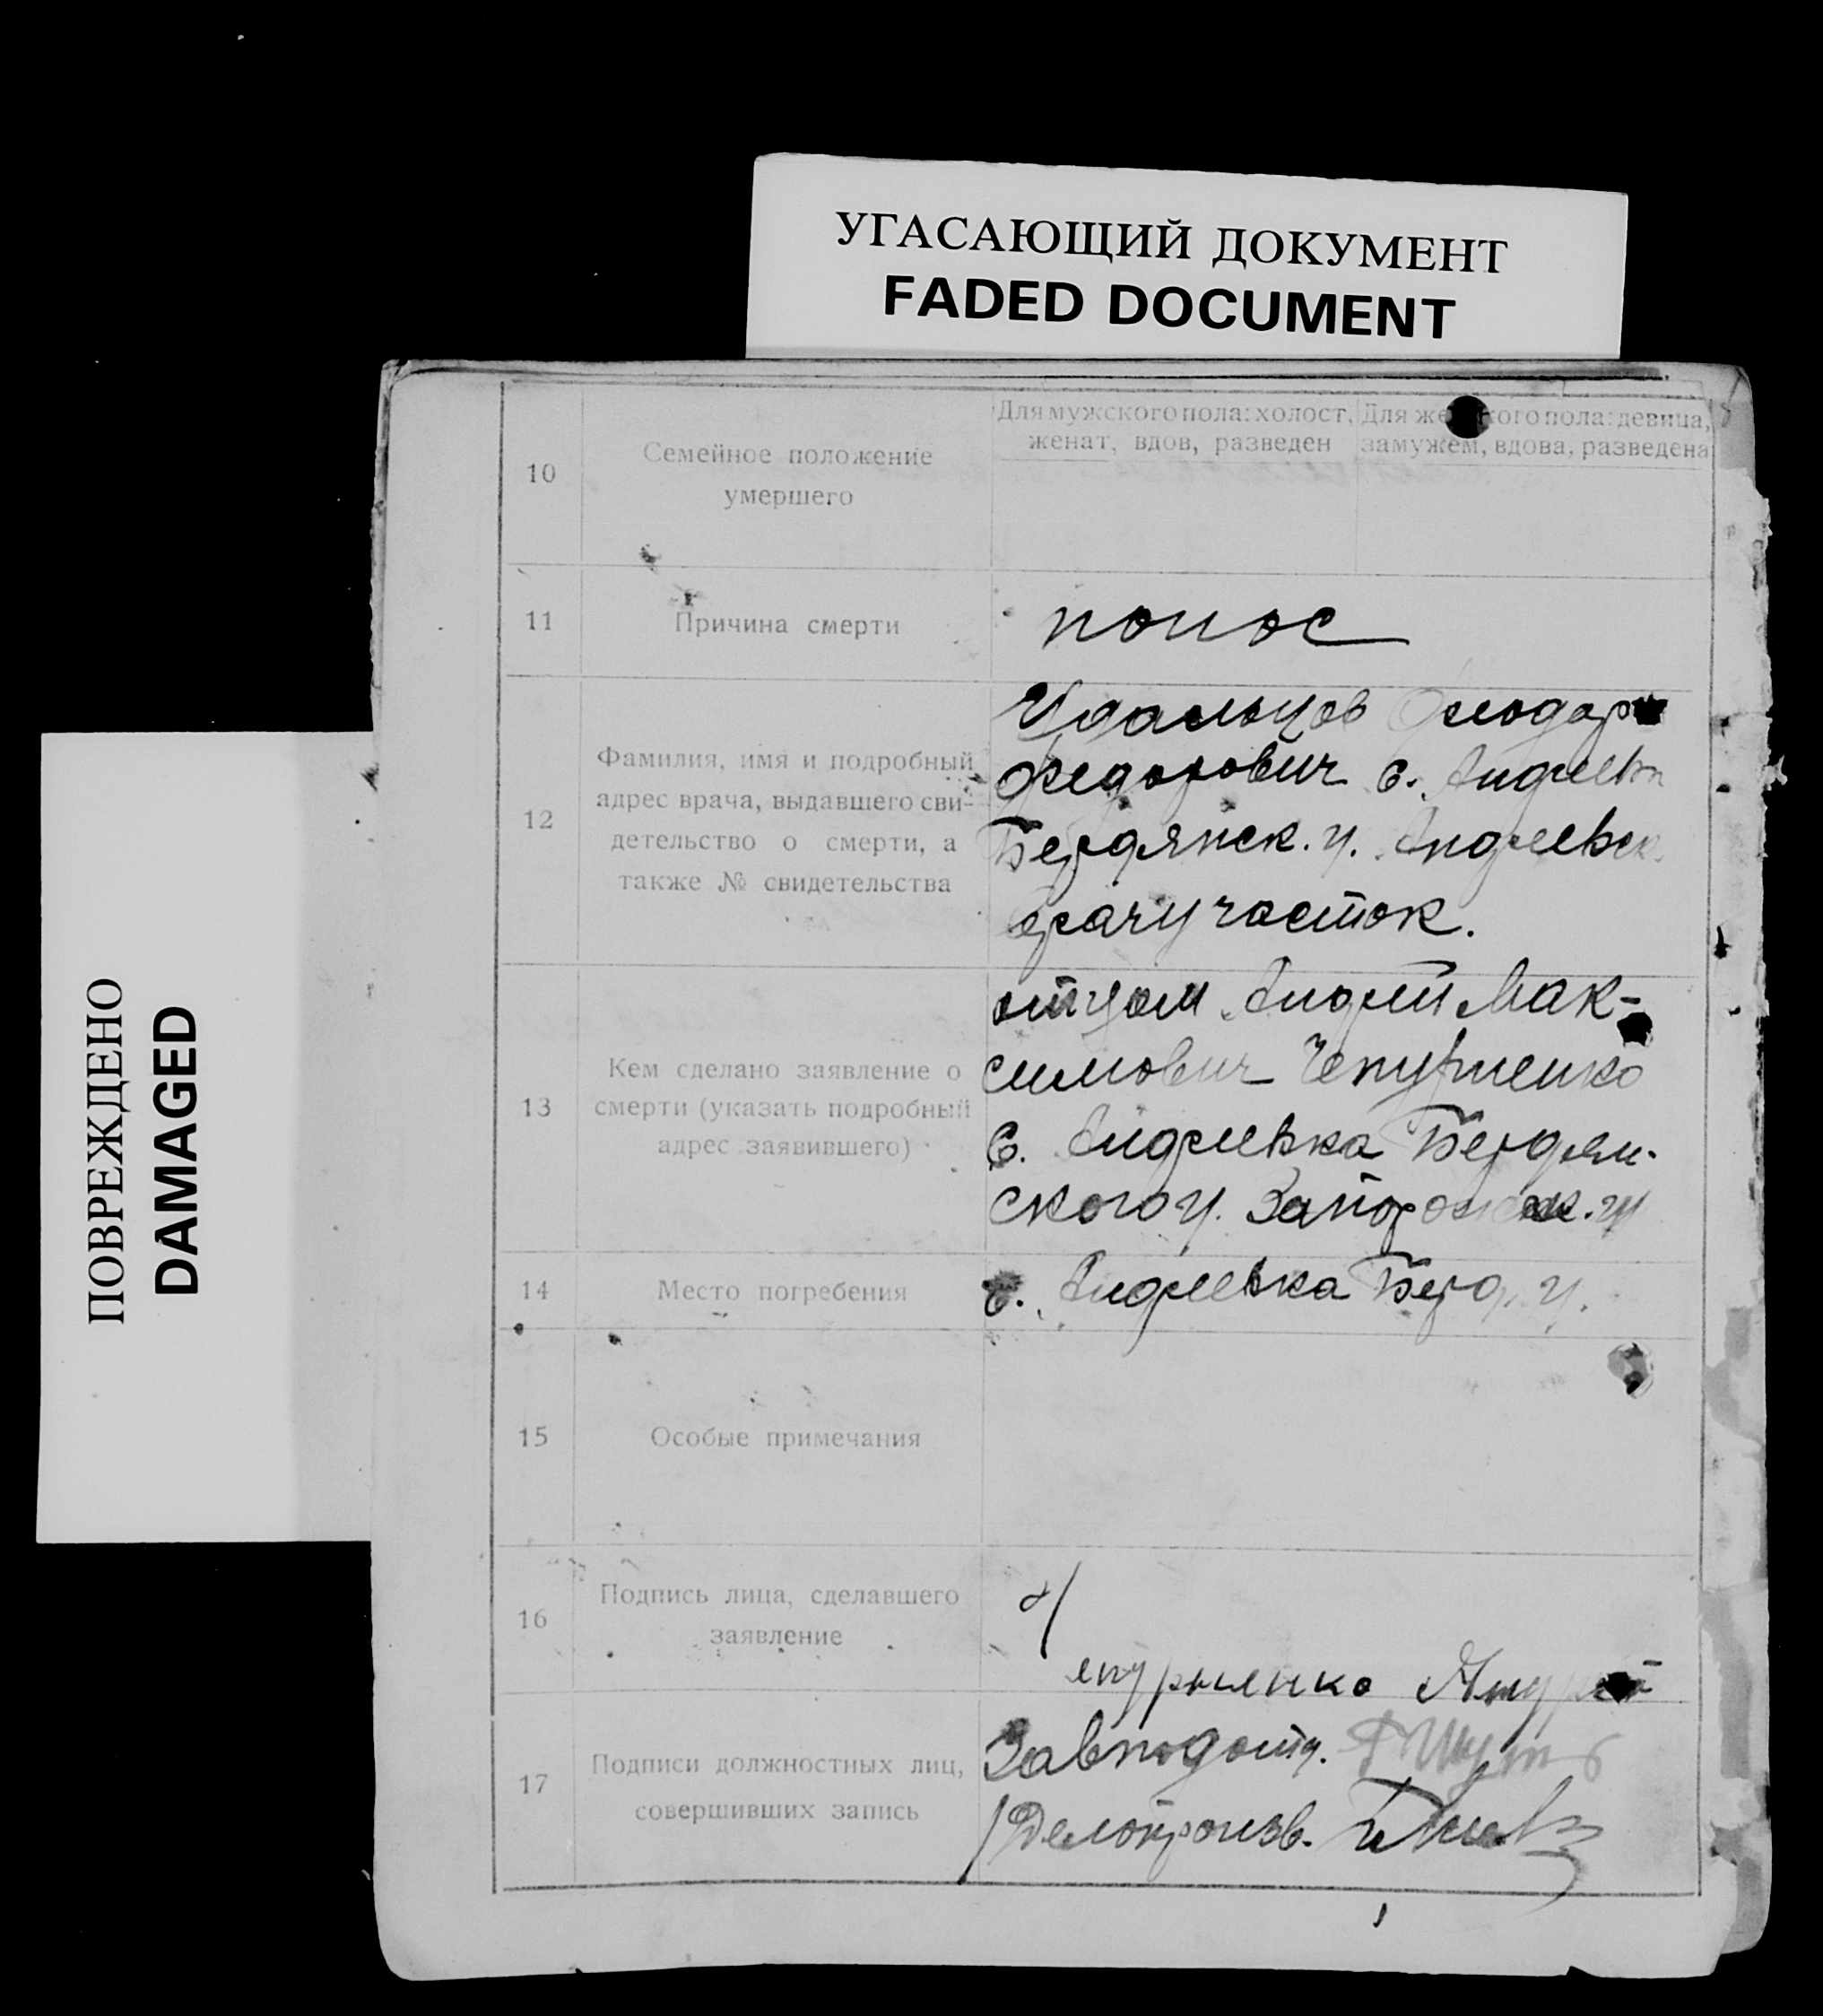 УГАСАЮЩИЙ ДОКУМЕНТ
FADED DOCUMENT
ПОВРЕЖДЕНО
DAMAGED
10
Семейное положение
умершего
Для мужского пола: холост,
женат, вдов, разведен
Для женского пола: девица,
замужем, вдова, разведена
11
Причина смерти
понос
12
Фамилия, имя и подробный
адрес врача, выдавшего сви-
детельство о смерти, а
также № свидетельства
Удальцов
Федорович с. Андреевка
Бердянск. у. Андреевск.
врачучасток.
13
Кем сделано заявление о
смерти (указать подробный
адрес заявившего)
отцом Андрей Мак-
симович Чепурненко
с. Андреевка Бердян-
ского у. Запорожск. г.
14
Место погребения
с. Андреевка Берд. у.
15
Особые примечания
16
Подпись лица, сделавшего
заявление
17
Подписи должностных лиц,
совершивших запись
Завподотд.
Делопроизв.